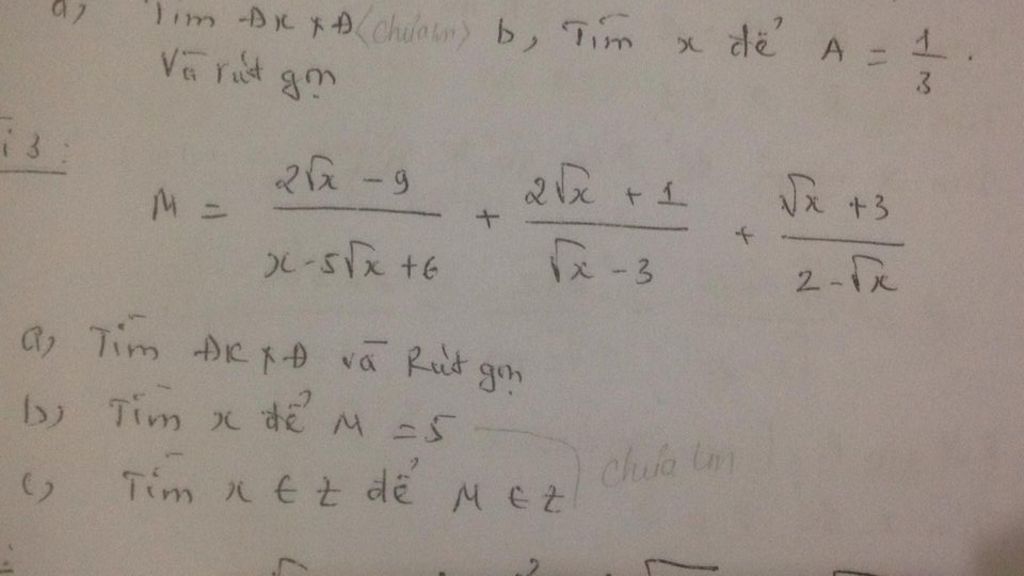 a, Tìm ĐK XĐ (chưa làm) b, Tìm x để A = 1/3.
Và rút gọn
i 3:
M = (2√x - 9)/(x - 5√x + 6) + (2√x + 1)/(√x - 3) + (√x + 3)/(2 - √x)
a, Tìm ĐK XĐ và Rút gọn
b, Tìm x để M = 5
chưa làm
c, Tìm x ∈ Z để M ∈ Z